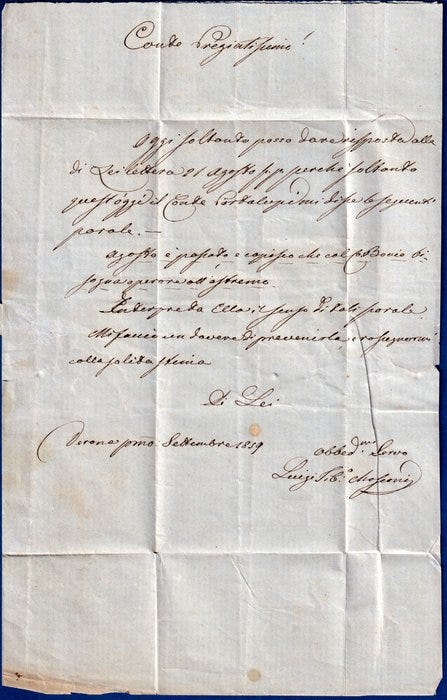 Conte Pregiatissimo!
Oggi soltanto posso dare risposta alla
di Lei lettera 21 Agosto s. p. perchè soltanto
quest'oggi il Conte mi disse le seguenti
parole. —
Agosto è passato e capisco che col Bonio bi-
sogna operare all'estremo.
Interpreta Ella il senso di tali parole
Mi faccio un dovere di prevenirla, e rassegnarmi
colla solita stima
Di Lei
Verona pmo. Settembre 1859
obbed.mo Servo
Luigi